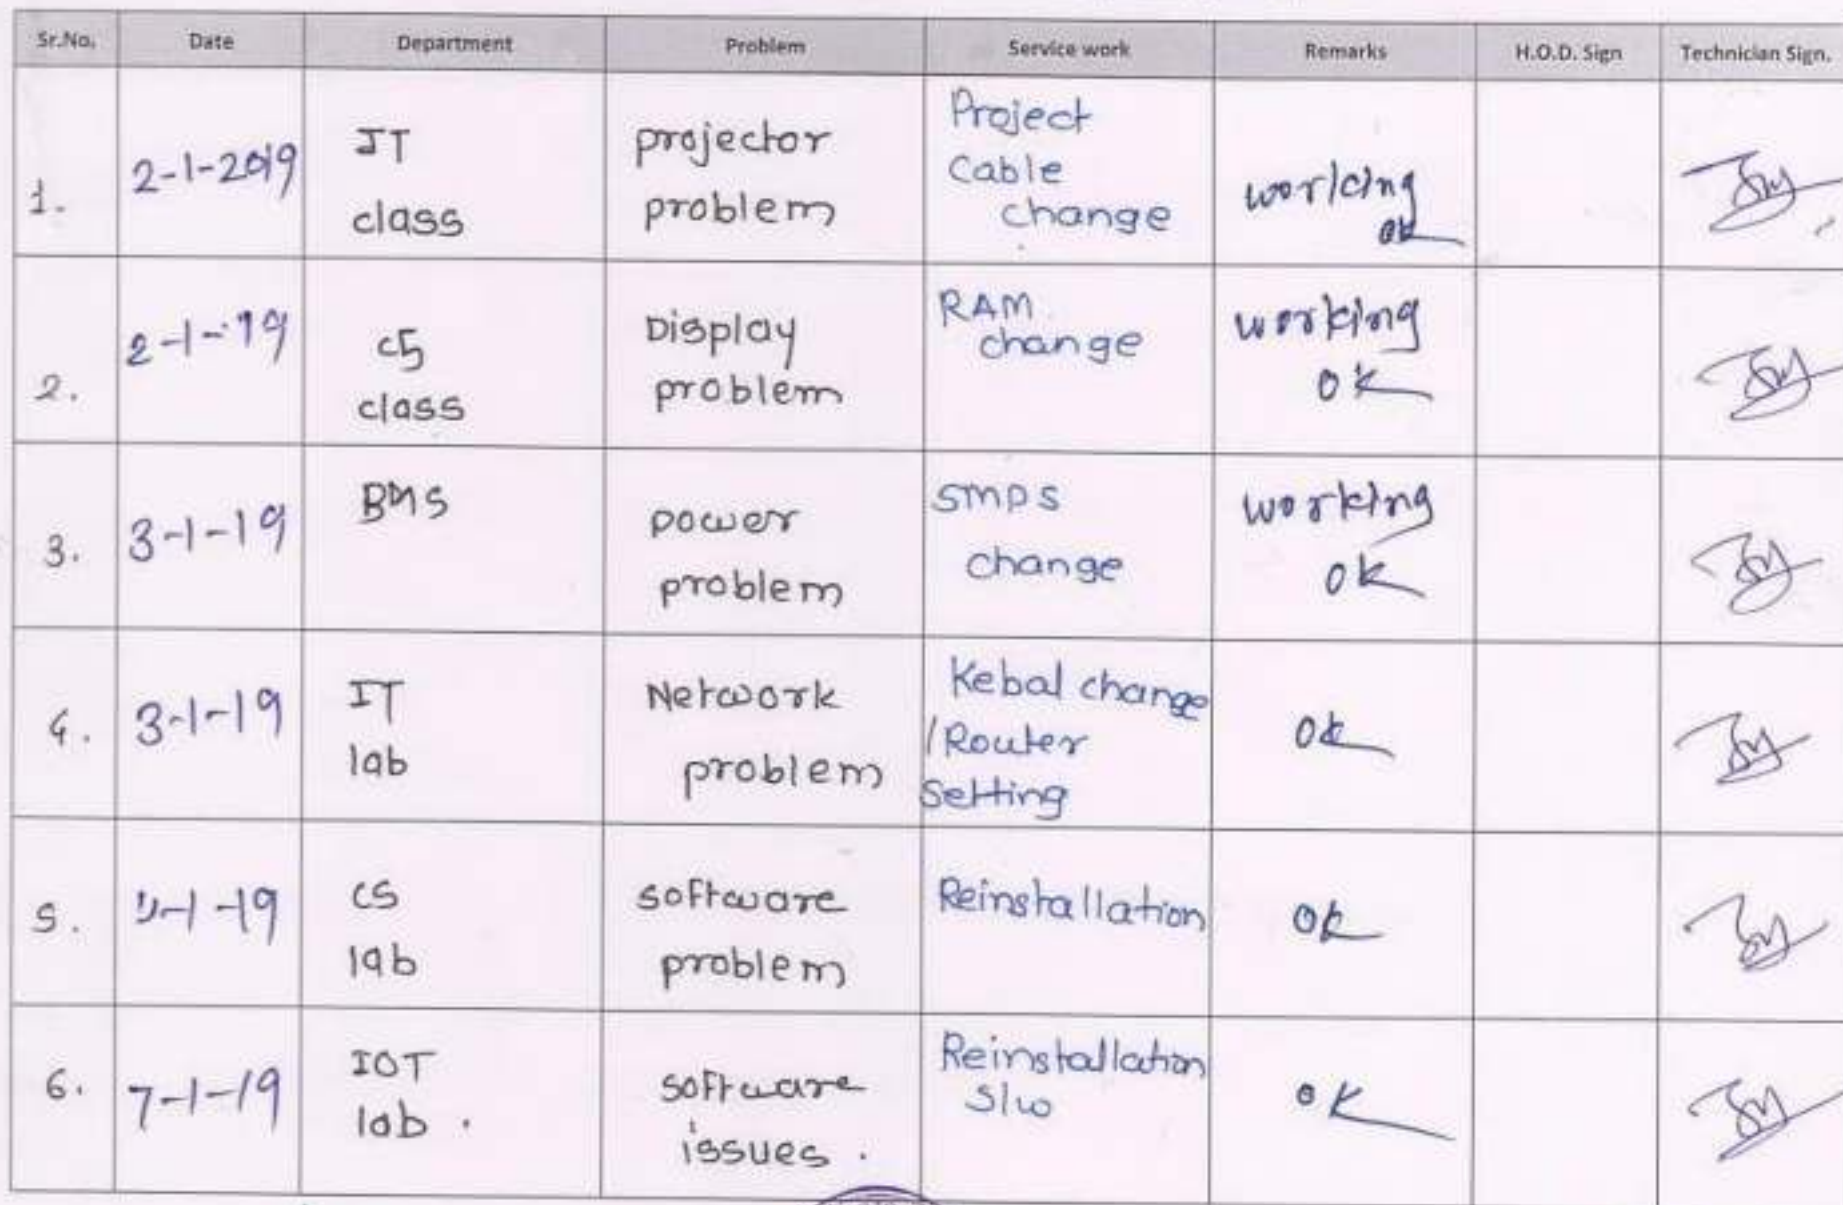 Sr.No. Date Department Problem Service work Remarks H.O.D. Sign Technician Sign.
1. 2-1-2019 IT class projector problem Project Cable change working ok
2. 2-1-19 CS class Display problem RAM change working ok
3. 3-1-19 BMS power problem SMPS change working ok
4. 3-1-19 IT lab Network problem Kebal change / Router Setting ok
5. -1-19 CS lab software problem Reinstallation ok
6. 7-1-19 IOT lab . software issues . Reinstallation S/w ok